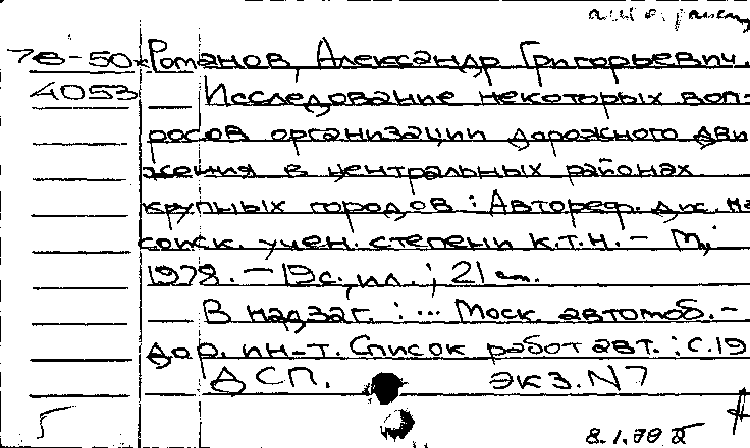 78-50к Романов, Александр Григорьевич.
4053 Исследование некоторых воп-
росов организации дорожного дви
жения в центральных районах
крупных городов : Автореф. дис. на
соиск. учен. степени к.т.н. - М.,
1978. - 19с., ил. ; 21 см.
В надзаг. : ... Моск. автомоб.-
дор. ин-т. Список работ авт. : с.19
ДСП. экз. N7